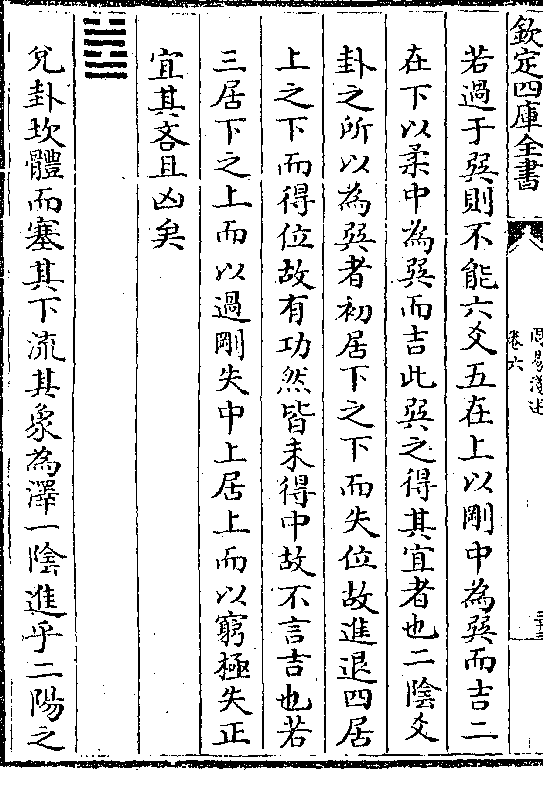 欽定四庫全書
卷六
若過于巽則不能六爻五在上以剛中為巽而吉二
在下以柔中為巽而吉此巽之得其宜者也二陰爻
卦之所以為巽者初居下之下而失位故進退四居
上之下而得位故有功然皆未得中故不言吉也若
三居下之上而以過剛失中上居上而以窮極失正
宜其吝且凶矣
兌卦坎體而塞其下流其象為澤一陰進乎二陽之